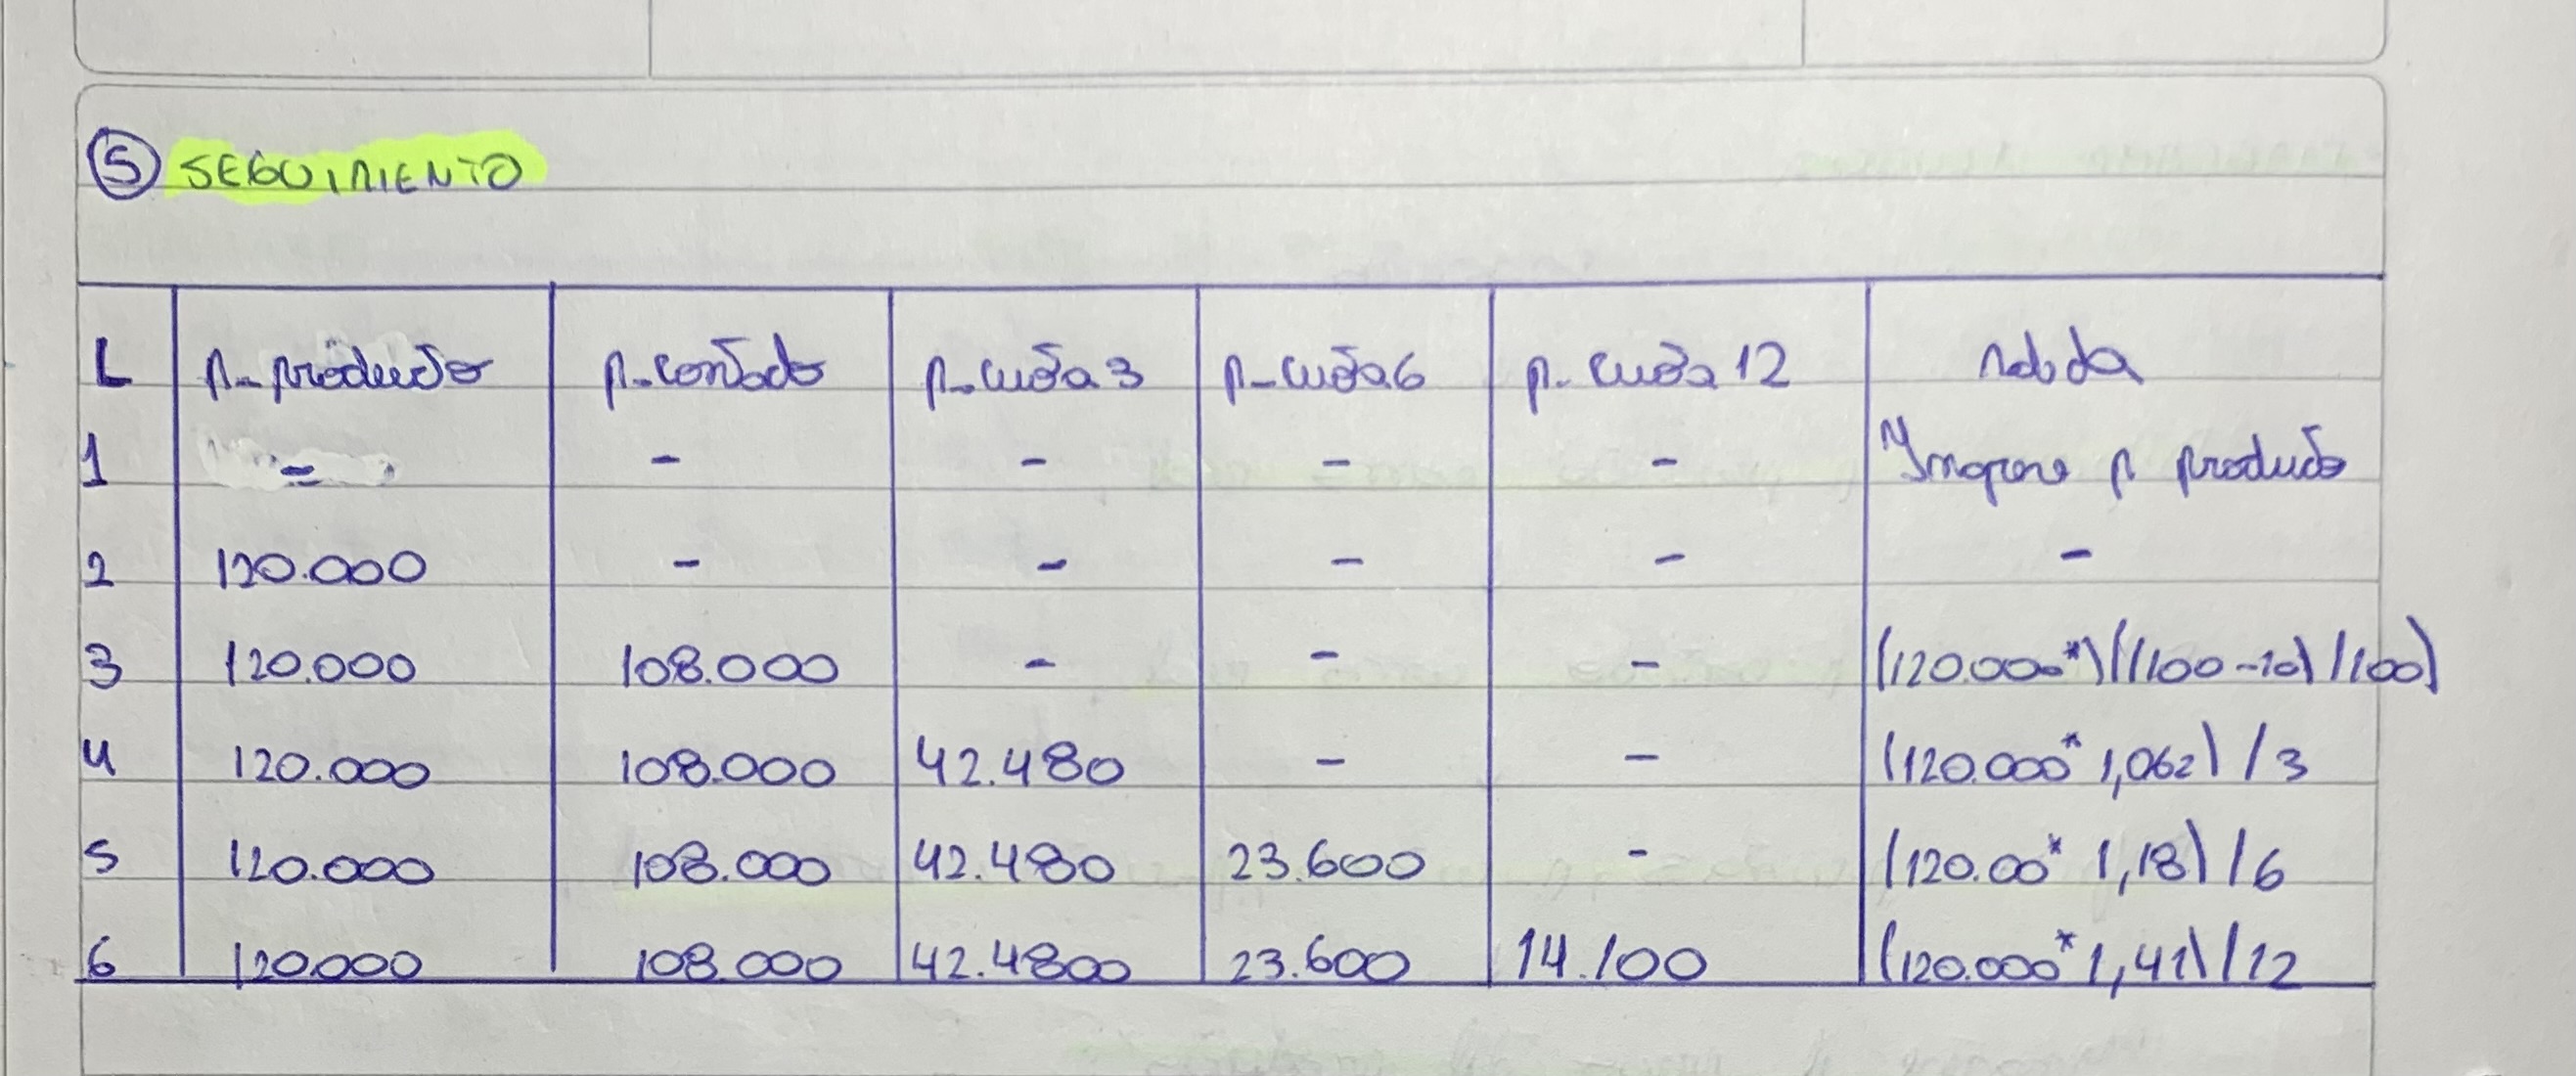 5 SEGUIMIENTO
L p-producto p-contado p-cuota 3 p-cuota 6 p-cuota 12 salida
1 - - - - - Ingrese p producto
2 120.000 - - - - -
3 120.000 108.000 - - - (120.000*)((100-10)/100)
4 120.000 108.000 42.480 - - (120.000*1,062)/3
5 120.000 108.000 42.480 23.600 - (120.00*1,18)/6
6 120.000 108.000 42.4800 23.600 14.100 (120.000*1,41)/12